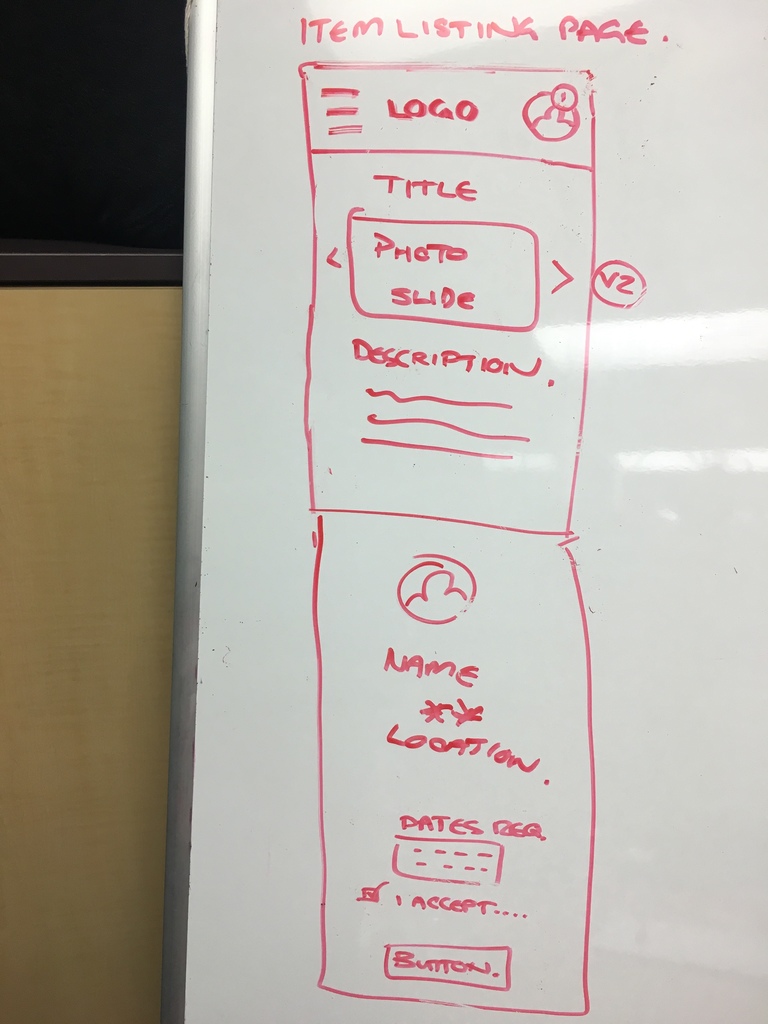 ITEM LISTING PAGE.
LOGO
1
TITLE
<
PHOTO
SLIDE
>
V2
DESCRIPTION.
NAME
**
LOCATION.
DATES REQ.
I ACCEPT....
BUTTON.